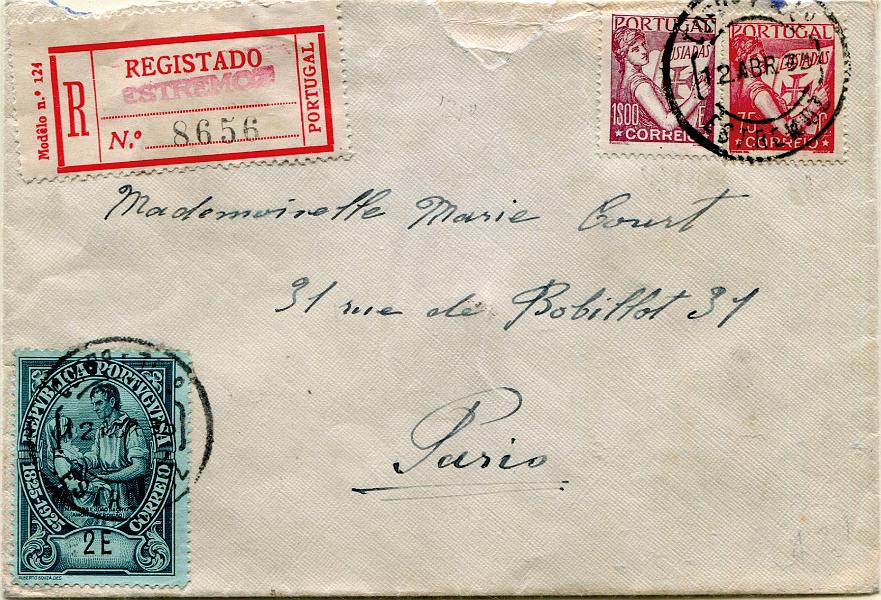 Modêlo n.º 124
R
REGISTADO
ESTREMOZ
N.º 8656
PORTUGAL
PORTUGAL
LUSIADAS
1$00
CORREIO
PORTUGAL
LUSIADAS
75
CORREIO
12 ABR
Mademoiselle Marie Court
31 rue de Bobillot 31
Paris
REPVBLICA PORTVGVESA
1825-1925
CORREIO
2E
ALBERTO SOUZA DES.